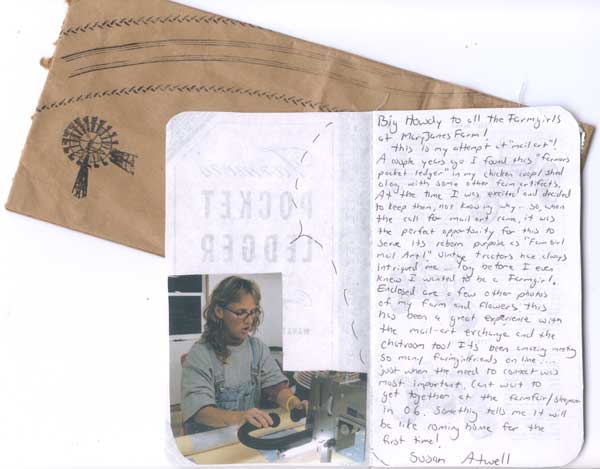 Farmers
POCKET
LEDGER
Big Howdy to all the Farmgirls
at MaryJanes Farm!
This is my attempt at "mail art"!
A couple years ago I found this "farmers
pocket ledger" in my chicken coop/shed
along with some other farm artifacts.
At the time I was excited and decided
to keep them, not knowing why. So, when
the call for mail art came, it was
the perfect opportunity for this to
serve its reborn purpose as "Farmgirl
Mail Art!" Vintage tractors have always
intrigued me... long before I even
knew I wanted to be a Farmgirl.
Enclosed are a few other photos
of my farm and flowers. This
has been a great experience with
the mail-art exchange and the
chatroom too! Its been amazing meeting
so many farmgirlfriends on line....
just when the need to connect was
most important. Cant wait to
get together at the farmfair/
in 06. Something tells me it will
be like coming home for the
first time!
Susan Atwell